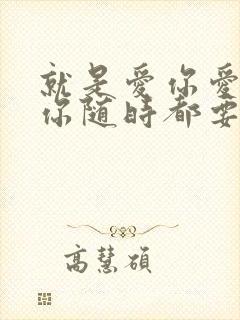 就是愛你愛
你随時都要
高慧碩